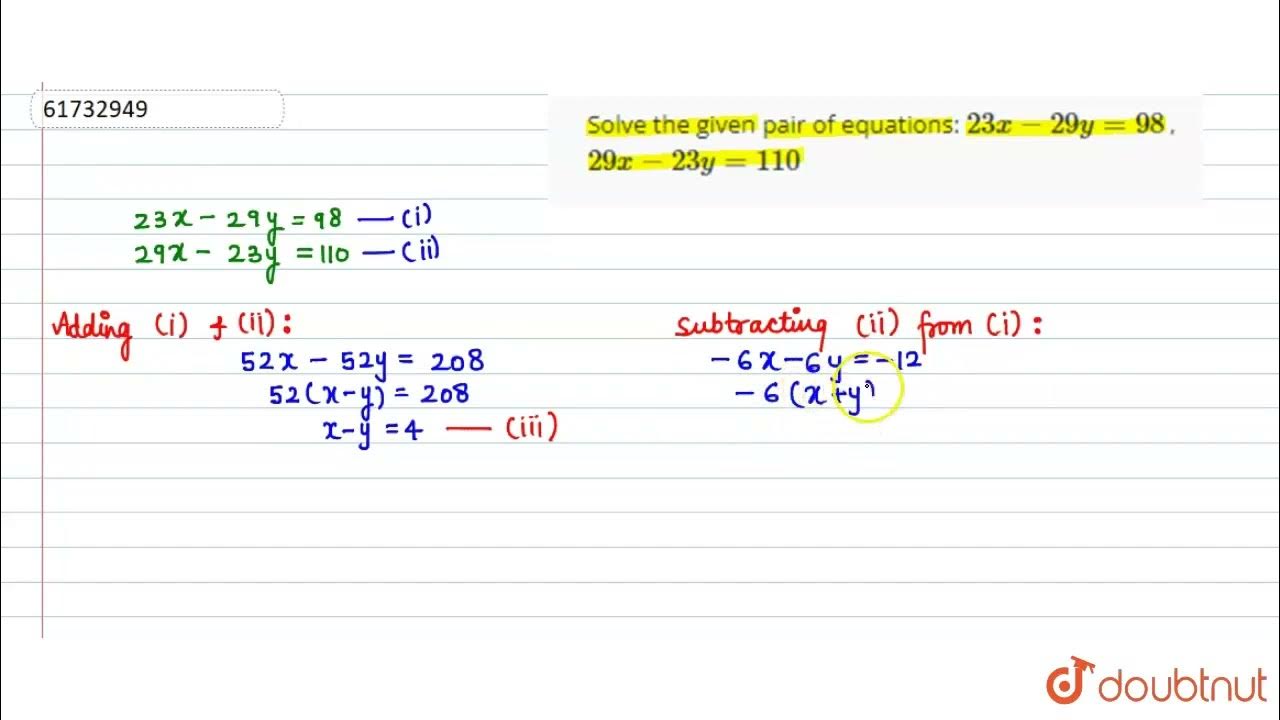 61732949
Solve the given pair of equations: 23x − 29y = 98 ,
29x − 23y = 110
23x − 29y = 98 — (i)
29x − 23y = 110 — (ii)
Adding (i) + (ii):
52x − 52y = 208
52(x−y) = 208
x−y = 4 — (iii)
Subtracting (ii) from (i):
−6x−6y = −12
−6(x+y)
doubtnut